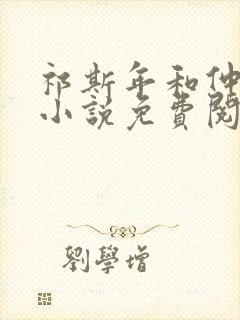 祁斯年和仲
小說免費閱
劉學增